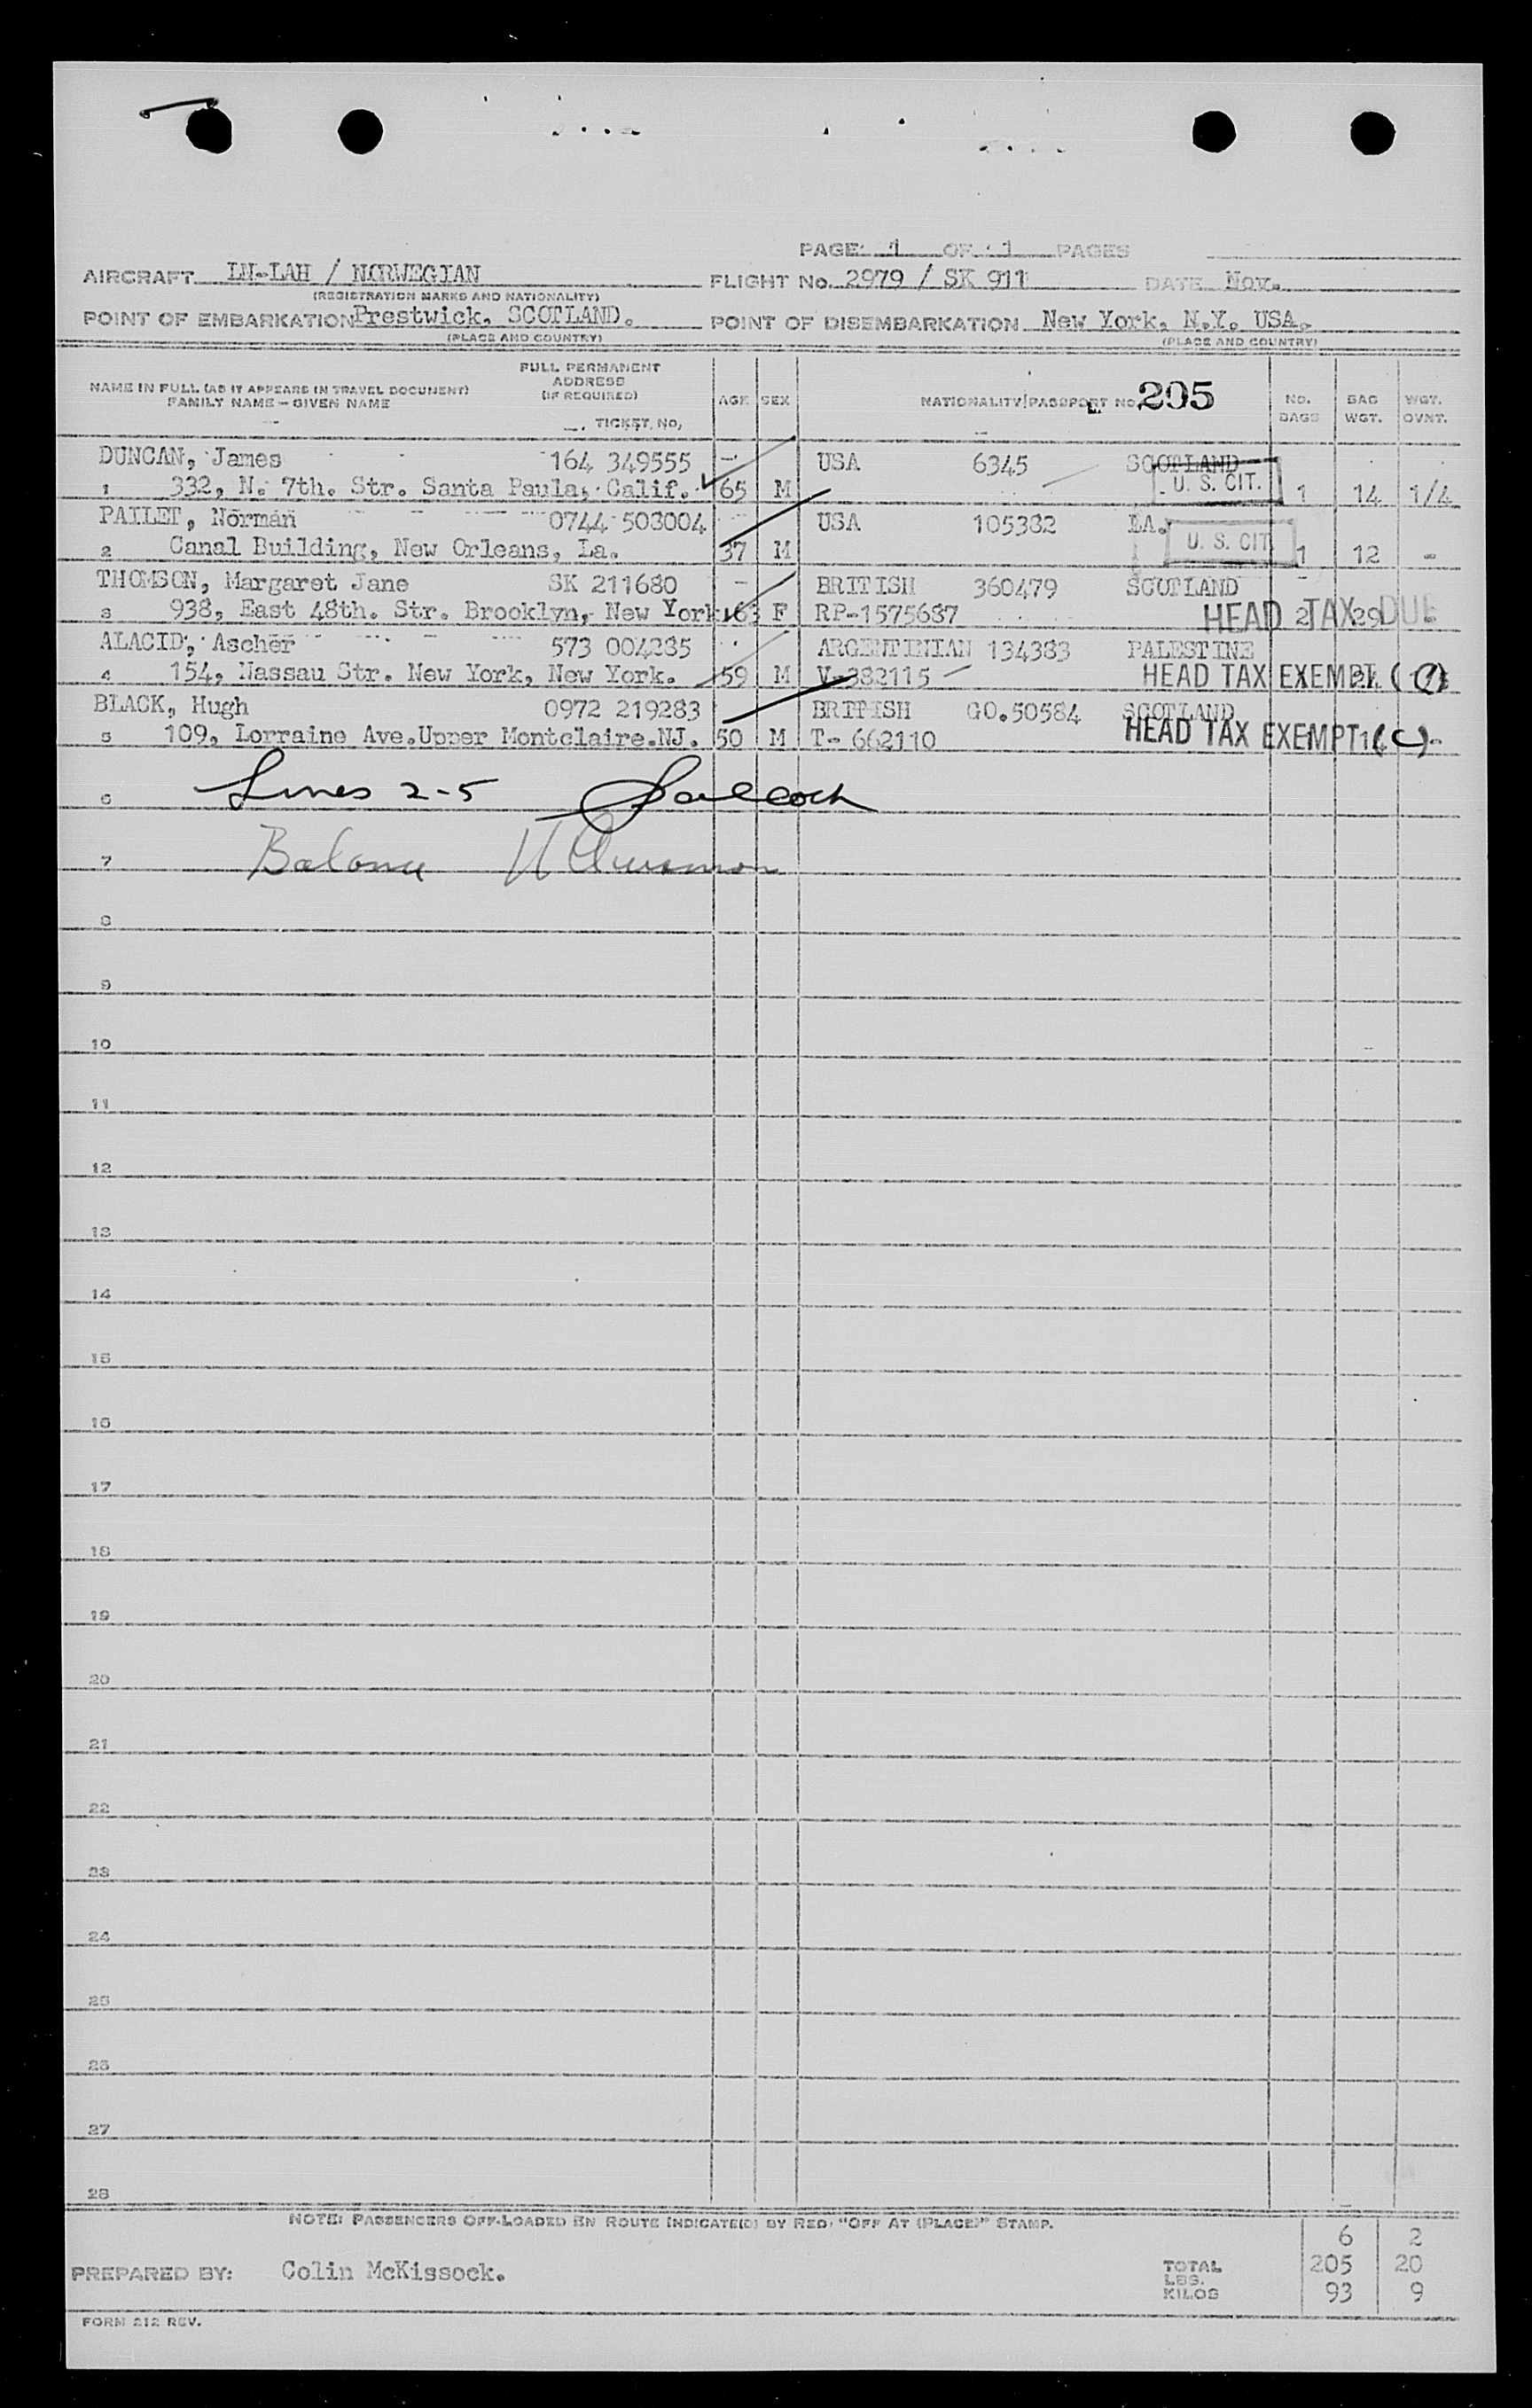 PAGE 1 OF 1 PAGES
AIRCRAFT LN-LAH / NORWEGIAN FLIGHT No. 2979 / SK 911 DATE Nov.
(REGISTRATION MARKS AND NATIONALITY)
POINT OF EMBARKATION Prestwick, SCOTLAND. POINT OF DISEMBARKATION New York, N.Y. USA.
(PLACE AND COUNTRY) (PLACE AND COUNTRY)
NAME IN FULL (AS IT APPEARS IN TRAVEL DOCUMENT) FAMILY NAME – GIVEN NAME FULL PERMANENT ADDRESS (IF REQUIRED) TICKET NO, AGE SEX NATIONALITY/PASSPORT NO. 205 NO. BAGS BAG WGT. WGT. OVNT.
DUNCAN, James 164 349555 USA 6345 SCOTLAND
1 332, N. 7th. Str. Santa Paula, Calif. 65 M U. S. CIT. 1 14 1/4
PAILET, Norman 0744 503004 USA 105382 LA.
2 Canal Building, New Orleans, La. 37 M U. S. CIT 1 12 -
THOMSON, Margaret Jane SK 211680 BRITISH 360479 SCOTLAND
3 938, East 48th. Str. Brooklyn, New York 63 F RP-1575687 HEAD TAX DUE 2 29
ALACID, Ascher 573 004285 ARGENTINIAN 134383 PALESTINE
4 154, Nassau Str. New York, New York. 59 M V-382115 HEAD TAX EXEMPT
BLACK, Hugh 0972 219283 BRITISH GO.50584 SCOTLAND
5 109, Lorraine Ave.Upper Montclaire.NJ. 50 M T- 662110 HEAD TAX EXEMPT (C)
6 Lines 2-5
7 Balance
8
9
10
11
12
13
14
15
16
17
18
19
20
21
22
23
24
25
26
27
28
NOTE: PASSENGERS OFF-LOADED EN ROUTE INDICATE(D) BY RED: "OFF AT (PLACE)" STAMP.
6 2
PREPARED BY: Colin McKissock. TOTAL LBS. 205 20
KILOS 93 9
FORM 212 REV.